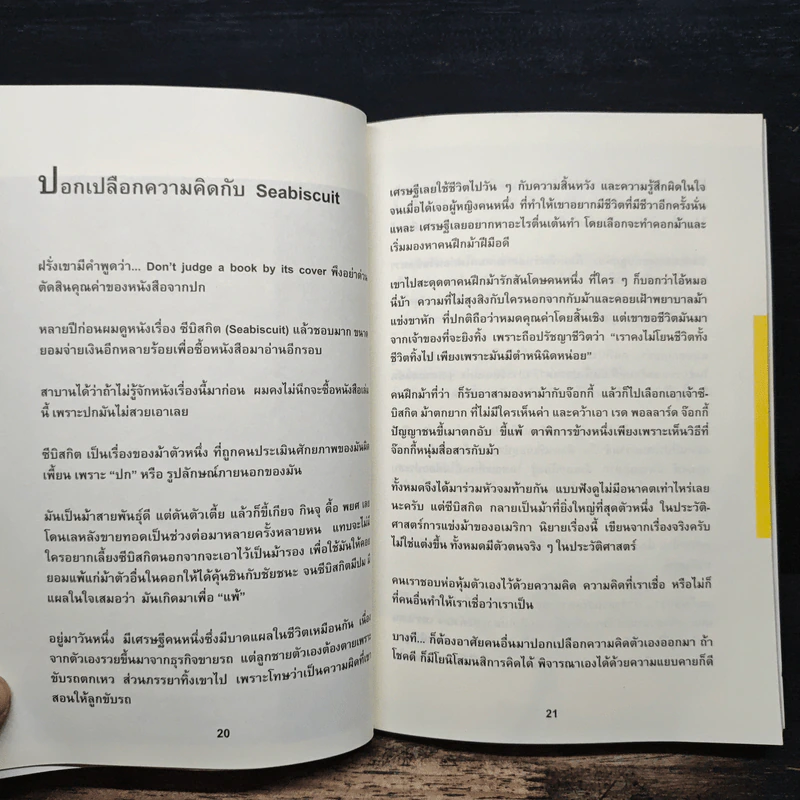 ปอกเปลือกความคิดกับ Seabiscuit
ฝรั่งเขามีคำพูดว่า... Don't judge a book by its cover พึงอย่าด่วน
ตัดสินคุณค่าของหนังสือจากปก
หลายปีก่อนผมดูหนังเรื่อง ซีบิสกิต (Seabiscuit) แล้วชอบมาก ขนาด
ยอมจ่ายเงินอีกหลายร้อยเพื่อซื้อหนังสือมาอ่านอีกรอบ
สาบานได้ว่าถ้าไม่รู้จักหนังเรื่องนี้มาก่อน ผมคงไม่นึกจะซื้อหนังสือเล่ม
นี้ เพราะปกมันไม่สวยเอาเลย
ซีบิสกิต เป็นเรื่องของม้าตัวหนึ่ง ที่ถูกคนประเมินศักยภาพของมันผิด
เพี้ยน เพราะ “ปก” หรือ รูปลักษณ์ภายนอกของมัน
มันเป็นม้าสายพันธุ์ดี แต่ดันตัวเตี้ย แล้วก็ขี้เกียจ กินจุ ดื้อ พยศ เลย
โดนเลหลังขายทอดเป็นช่วงต่อมาหลายครั้งหลายหน แทบจะไม่มี
ใครอยากเลี้ยงซีบิสกิตนอกจากจะเอาไว้เป็นม้ารอง เพื่อใช้มันให้คอย
ยอมแพ้แก่ม้าตัวอื่นในคอกให้ได้คุ้นชินกับชัยชนะ จนซีบิสกิตมีปม มี
แผลในใจเสมอว่า มันเกิดมาเพื่อ “แพ้”
อยู่มาวันหนึ่ง มีเศรษฐีคนหนึ่งซึ่งมีบาดแผลในชีวิตเหมือนกัน เนื่อง
จากตัวเองรวยขึ้นมาจากธุรกิจขายรถ แต่ลูกชายตัวเองต้องตายเพราะ
ขับรถตกเหว ส่วนภรรยาทิ้งเขาไป เพราะโทษว่าเป็นความผิดที่เขา
สอนให้ลูกขับรถ
20
เศรษฐีเลยใช้ชีวิตไปวัน ๆ กับความสิ้นหวัง และความรู้สึกผิดในใจ
จนเมื่อได้เจอผู้หญิงคนหนึ่ง ที่ทำให้เขาอยากมีชีวิตที่มีชีวาอีกครั้งนั่น
แหละ เศรษฐีเลยอยากหาอะไรตื่นเต้นทำ โดยเลือกจะทำคอกม้าและ
เริ่มมองหาคนฝึกม้าฝีมือดี
เขาไปสะดุดตาคนฝึกม้ารักสันโดษคนหนึ่ง ที่ใคร ๆ ก็บอกว่าไอ้หมอ
นี่บ้า ความที่ไม่สุงสิงกับใครนอกจากกับม้าและคอยเฝ้าพยาบาลม้า
แข่งขาหัก ที่ปกติถือว่าหมดคุณค่าโดยสิ้นเชิง แต่เขาขอชีวิตมันมา
จากเจ้าของที่จะยิงทิ้ง เพราะถือปรัชญาชีวิตว่า “เราคงไม่โยนชีวิตทั้ง
ชีวิตทิ้งไป เพียงเพราะมันมีตำหนินิดหน่อย”
คนฝึกม้าที่ว่า ก็รับอาสามองหาม้ากับจ๊อกกี้ แล้วก็ไปเลือกเอาเจ้าซี-
บิสกิต ม้าตกยาก ที่ไม่มีใครเห็นค่า และคว้าเอา เรด พอลลาร์ด จ๊อกกี้
ปัญญาชนขี้เมาตกอับ ขี้แพ้ ตาพิการข้างหนึ่งเพียงเพราะเห็นวิธีที่
จ๊อกกี้หนุ่มสื่อสารกับม้า
ทั้งหมดจึงได้มาร่วมหัวจมท้ายกัน แบบฟังดูไม่มีอนาคตเท่าไหร่เลย
นะครับ แต่ซีบิสกิต กลายเป็นม้าที่ยิ่งใหญ่ที่สุดตัวหนึ่ง ในประวัติ-
ศาสตร์การแข่งม้าของอเมริกา นิยายเรื่องนี้ เขียนจากเรื่องจริงครับ
ไม่ใช่แต่งขึ้น ทั้งหมดมีตัวตนจริง ๆ ในประวัติศาสตร์
คนเราชอบห่อหุ้มตัวเองไว้ด้วยความคิด ความคิดที่เราเชื่อ หรือไม่ก็
ที่คนอื่นทำให้เราเชื่อว่าเราเป็น
บางที... ก็ต้องอาศัยคนอื่นมาปอกเปลือกความคิดตัวเองออกมา ถ้า
โชคดี ก็มีโยนิโสมนสิการคิดได้ พิจารณาเองได้ด้วยความแยบคายก็ดี
21